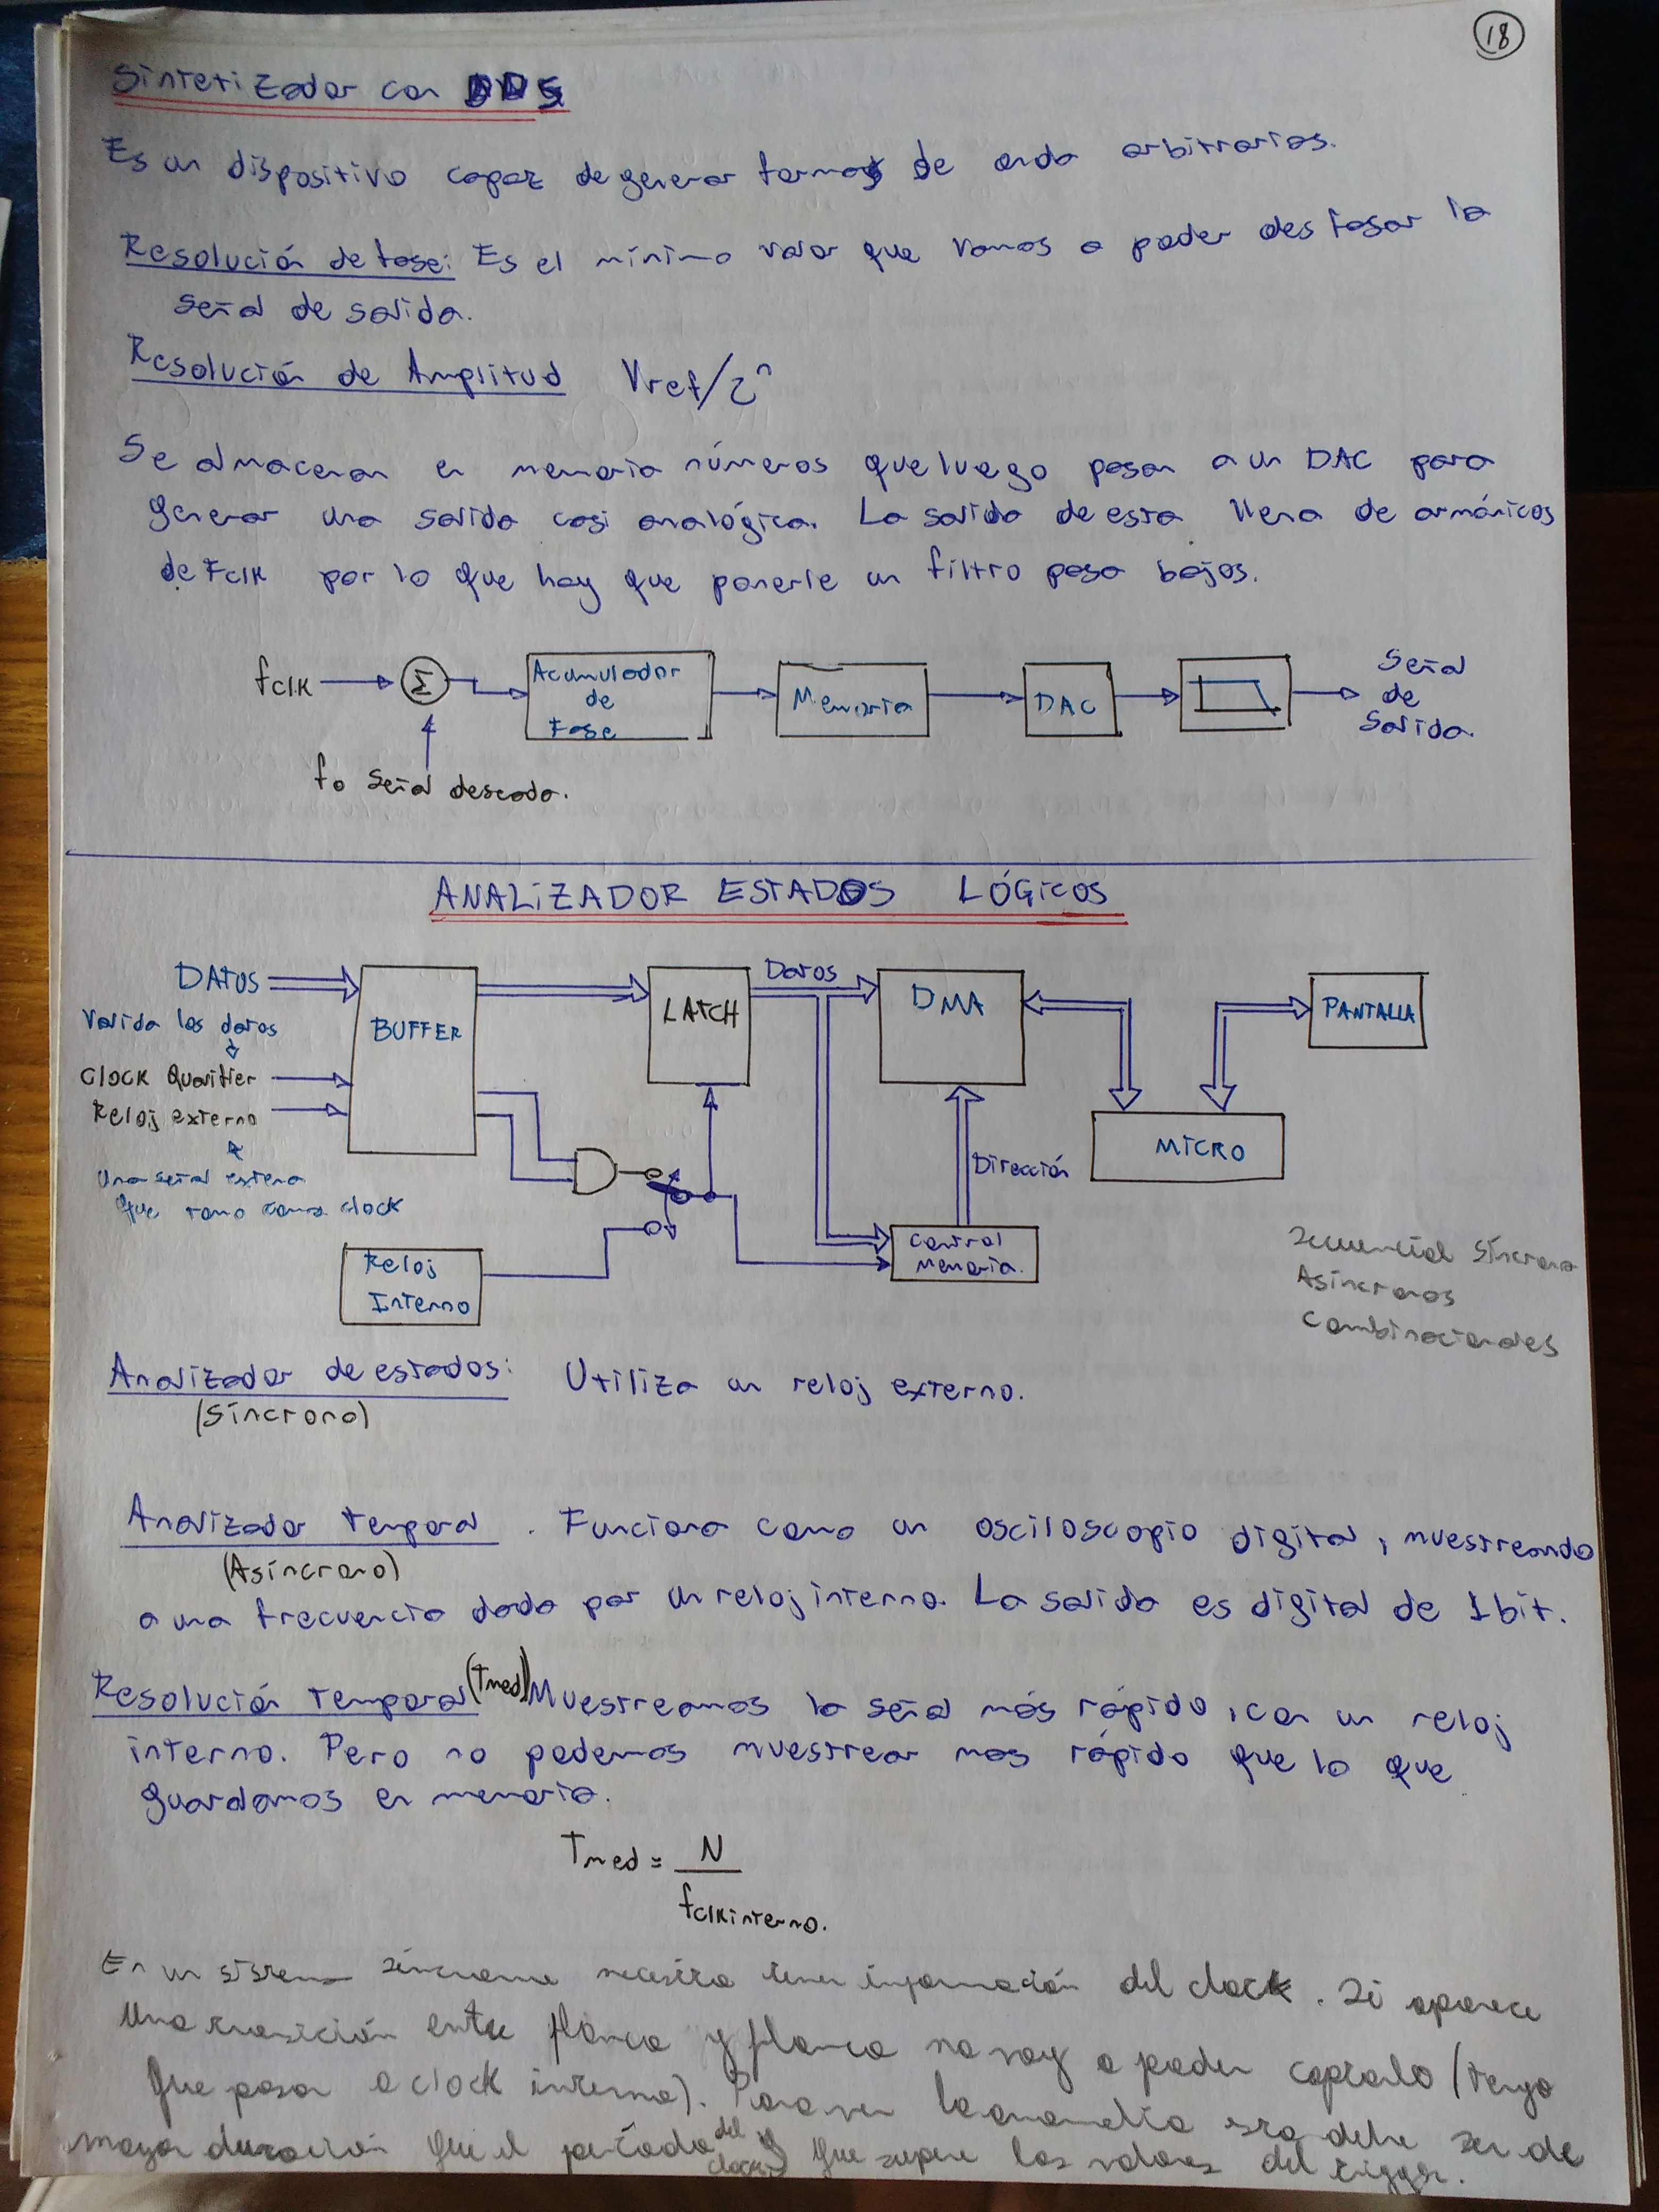 18
Sintetizador con DDS
Es un dispositivo capaz de generar formas de onda arbitrarias.
Resolución de fase: Es el mínimo valor que vamos a poder desfasar la
señal de salida.
Resolución de Amplitud Vref/2ⁿ
Se almacenan en memoria números que luego pasan a un DAC para
generar una salida casi analógica. La salida de esta llena de armónicos
de Fclk por lo que hay que ponerle un filtro pasa bajos.
fclk
Σ
Acumulador
de
Fase
Memoria
DAC
Señal
de
Salida.
fo señal deseada.
ANALIZADOR ESTADOS LÓGICOS
DATOS
Valida los datos
Clock Qualifier
Reloj externo
Una señal externa
que tomo como clock
BUFFER
LATCH
Datos
DMA
PANTALLA
MICRO
Dirección
Control
Memoria.
Reloj
Interno
Secuencial Síncrono
Asíncronos
Combinacionales
Analizador de estados: Utiliza un reloj externo.
(Síncrono)
Analizador temporal. Funciona como un osciloscopio digital, muestreando
(Asíncrono)
a una frecuencia dada por un reloj interno. La salida es digital de 1bit.
Resolución temporal (Tmed) Muestreamos la señal más rápido, con un reloj
interno. Pero no podemos muestrear mas rápido que lo que
guardamos en memoria.
Tmed = N
fclk interno.
En un sistema síncrono necesito tener información del clock. Si aparece
una transición entre flanco y flanco no voy a poder captarlo (tengo
que pasar a clock interno). Para ver la anomalía esta debe ser de
mayor duración que el período del clock y que supere los valores del trigger.